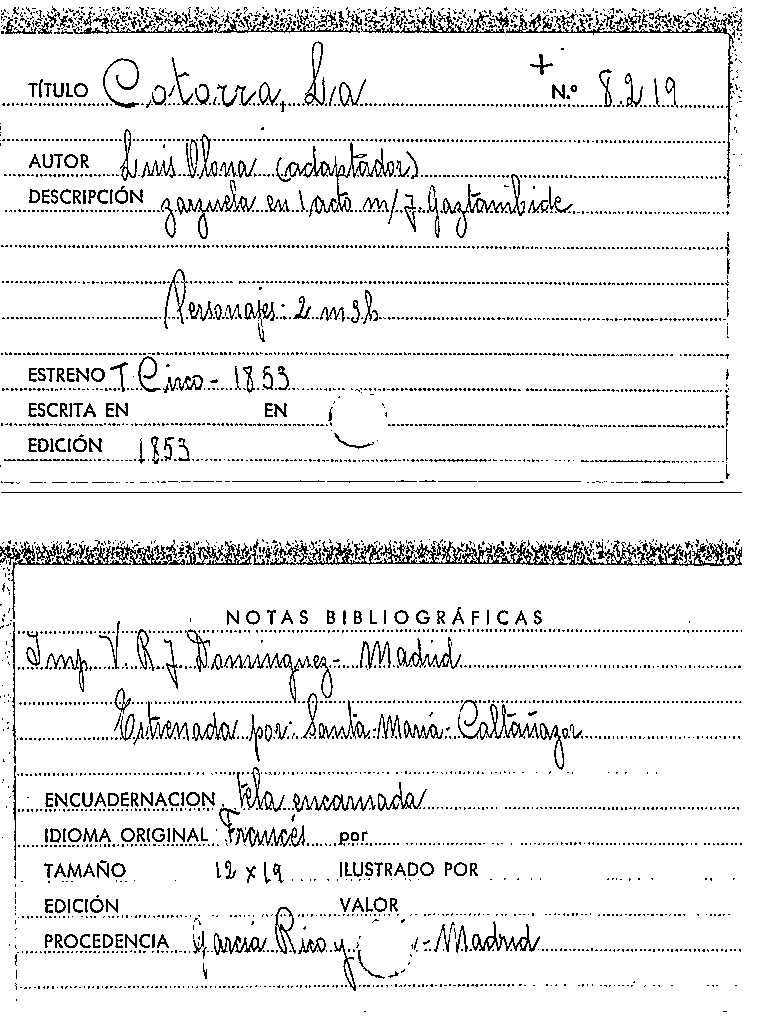 TÍTULO Cotorra, La + N.º 8.219
AUTOR Luis Olona (adaptador)
DESCRIPCIÓN zarzuela en 1 acto m/ J. Gaztambide
Personajes: 2 m 3 h
ESTRENO T Circo - 1853
ESCRITA EN EN
EDICIÓN 1853
NOTAS BIBLIOGRÁFICAS
Imp. V. R. J Dominguez - Madrid
Estrenada por: Santa-María - Caltañazor
ENCUADERNACION tela encarnada
IDIOMA ORIGINAL Francés por
TAMAÑO 12 x 19 ILUSTRADO POR
EDICIÓN VALOR
PROCEDENCIA García Rico y - Madrid